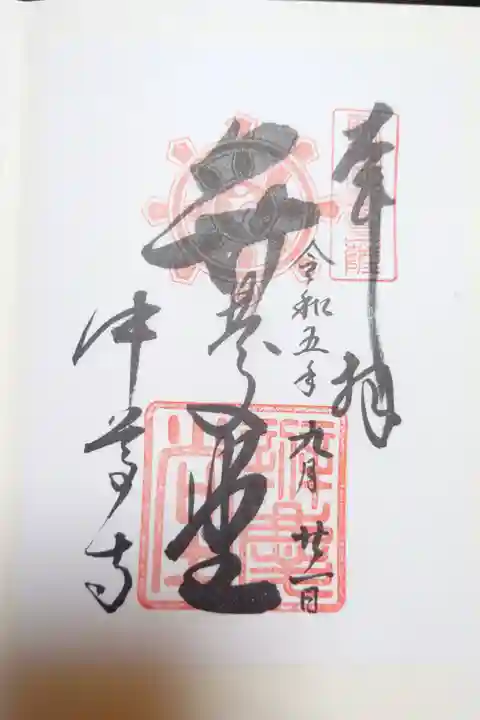 奉拝
令和五年九月廿一日
弁慶堂
中尊寺